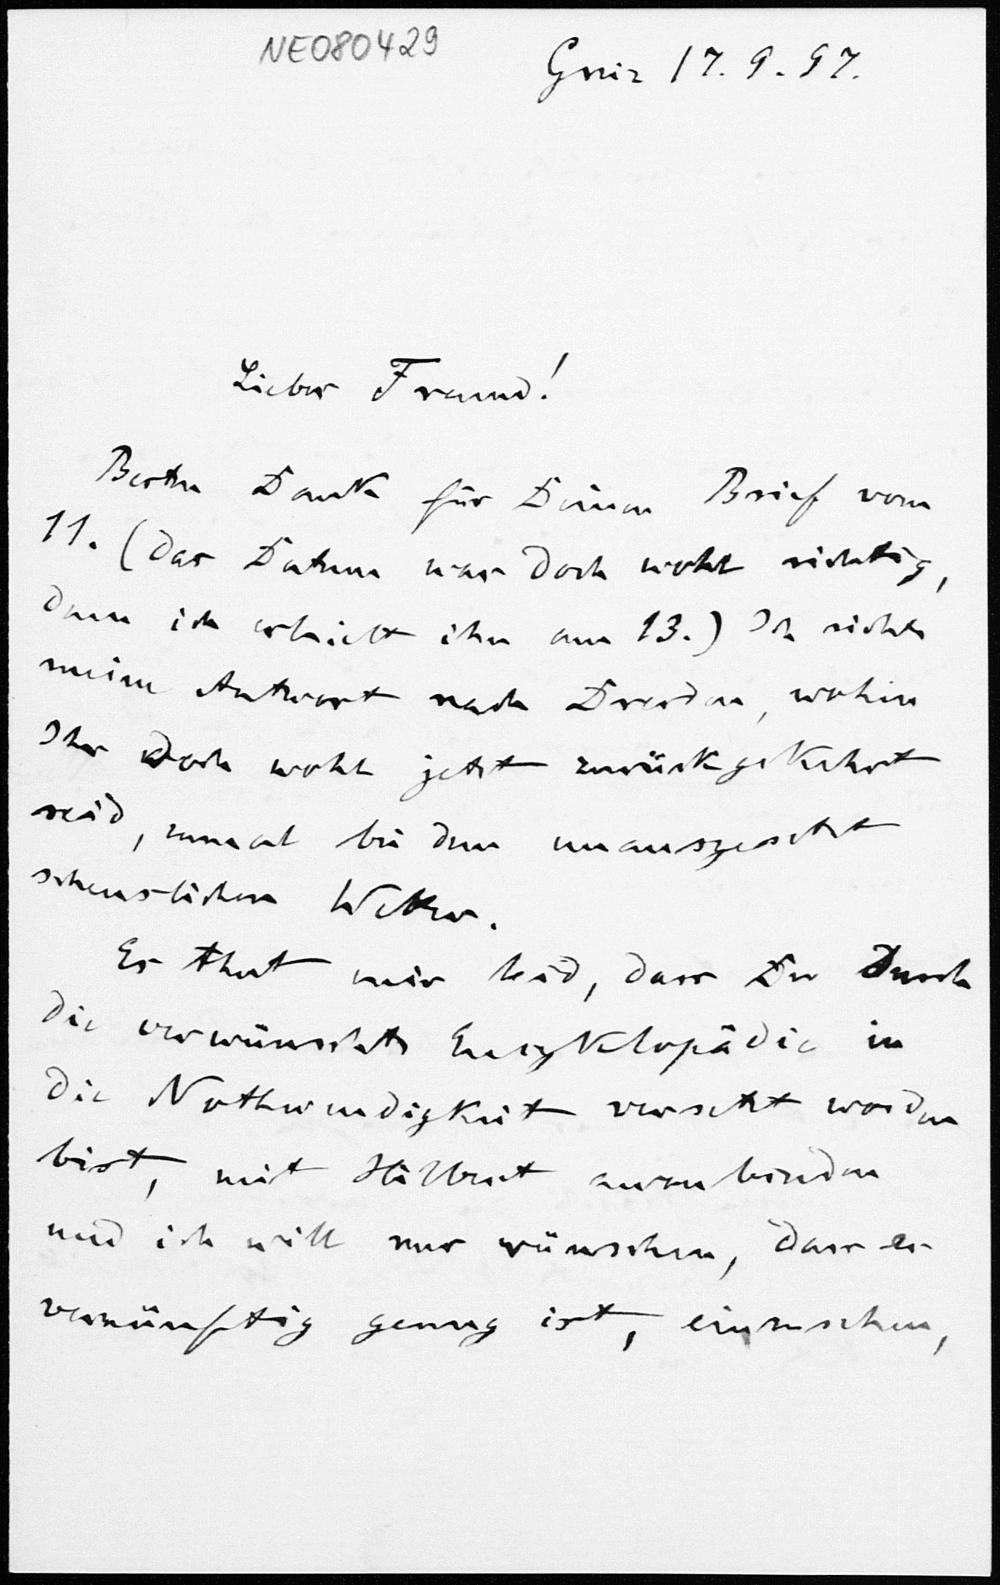 NE080429
Greiz 17. 9. 97.
Lieber Freund!
Besten Dank für Deinen Brief vom
11. (das Datum war doch wohl richtig,
denn ich erhielt ihn am 13.) Ich richte
meine Antwort nach Dresden, wohin
Ihr doch wohl jetzt zurückgekehrt
seid, zumal bei dem unausgesetzt
scheusslichen Wetter.
Es thut mir leid, dass Du durch
die verwünschte Encyklopädie in
die Nothwendigkeit versetzt worden
bist, mit Hilbert anzubinden
und ich will nur wünschen, dass er
vernünftig genug ist, einzusehen,